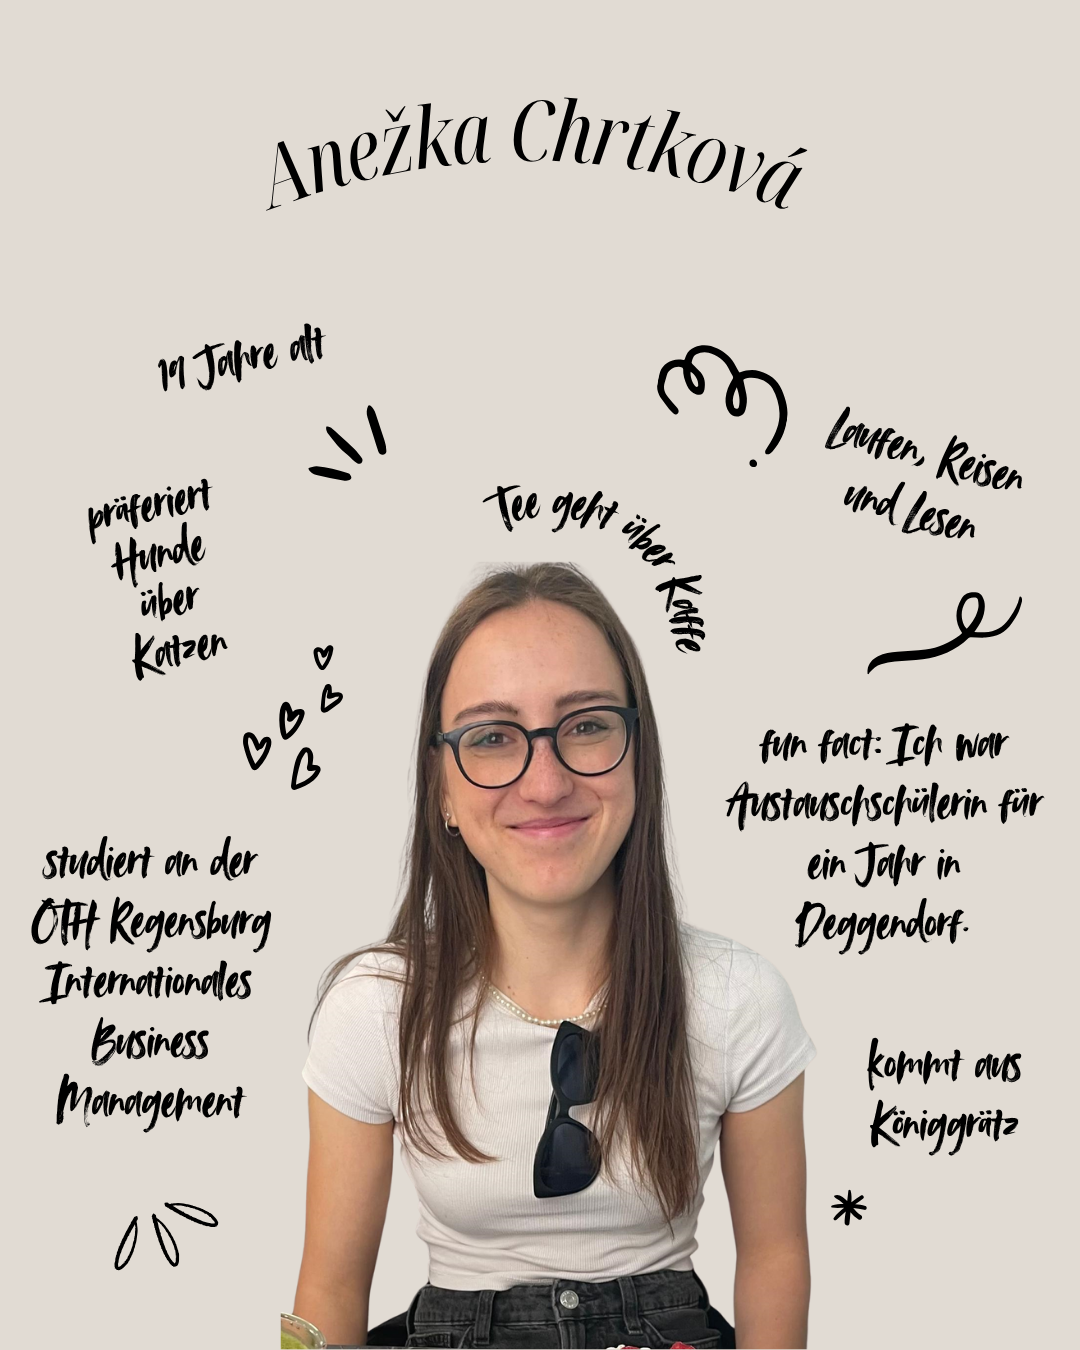 Anežka Chrtková
19 Jahre alt
Laufen, Reisen
und Lesen
präferiert
Hunde
über
Katzen
Tee geht über Kaffe
fun fact: Ich war
Austauschschülerin für
ein Jahr in
Deggendorf.
studiert an der
OTH Regensburg
Internationales
Business
Management
kommt aus
Königgrätz